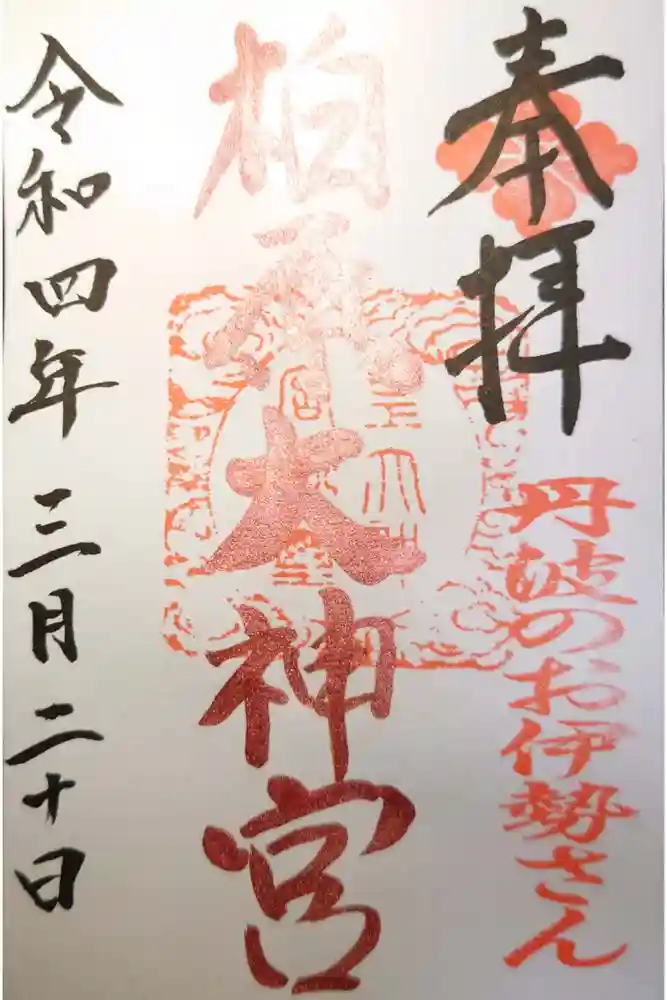 奉拝
丹波のお伊勢さん
柏原大神宮
令和四年 三月二十日